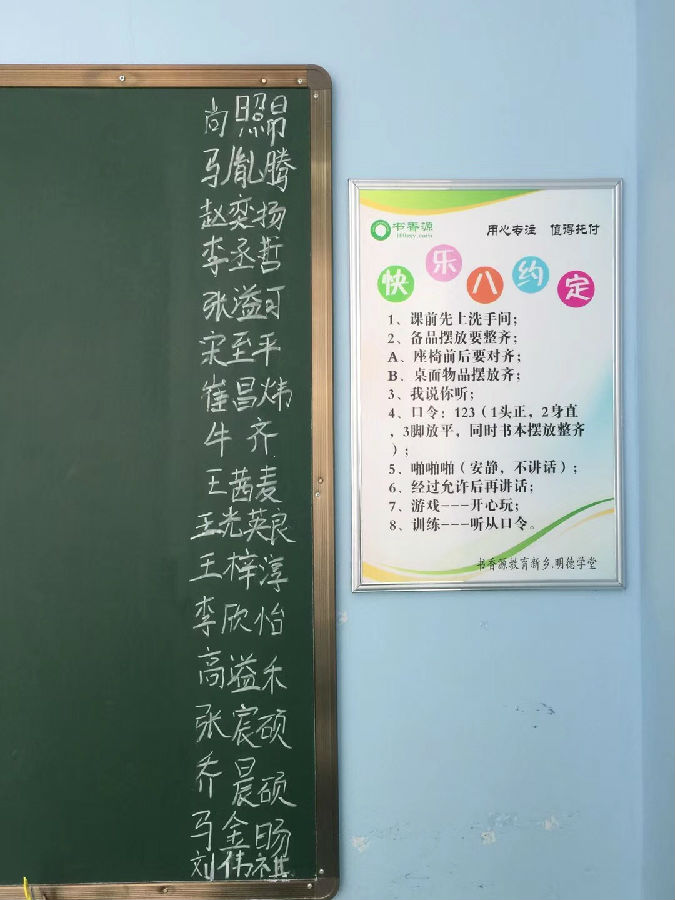 尚照
马胤腾
赵奕扬
李丞哲
张溢可
宋至平
崔昌炜
牛 齐
王茜麦
王光英良
王梓淳
李欣怡
高溢禾
张宸硕
乔晨硕
马金旸
刘伟祺
书香源
用心专注 值得托付
快乐八约定
1、课前先上洗手间；
2、备品摆放要整齐；
A、座椅前后要对齐；
B、桌面物品摆放齐；
3、我说你听；
4、口令：123（1头正，2身直
，3脚放平，同时书本摆放整齐
）；
5、啪啪啪（安静，不讲话）；
6、经过允许后再讲话；
7、游戏---开心玩；
8、训练---听从口令。
书香源教育新乡.明德学堂